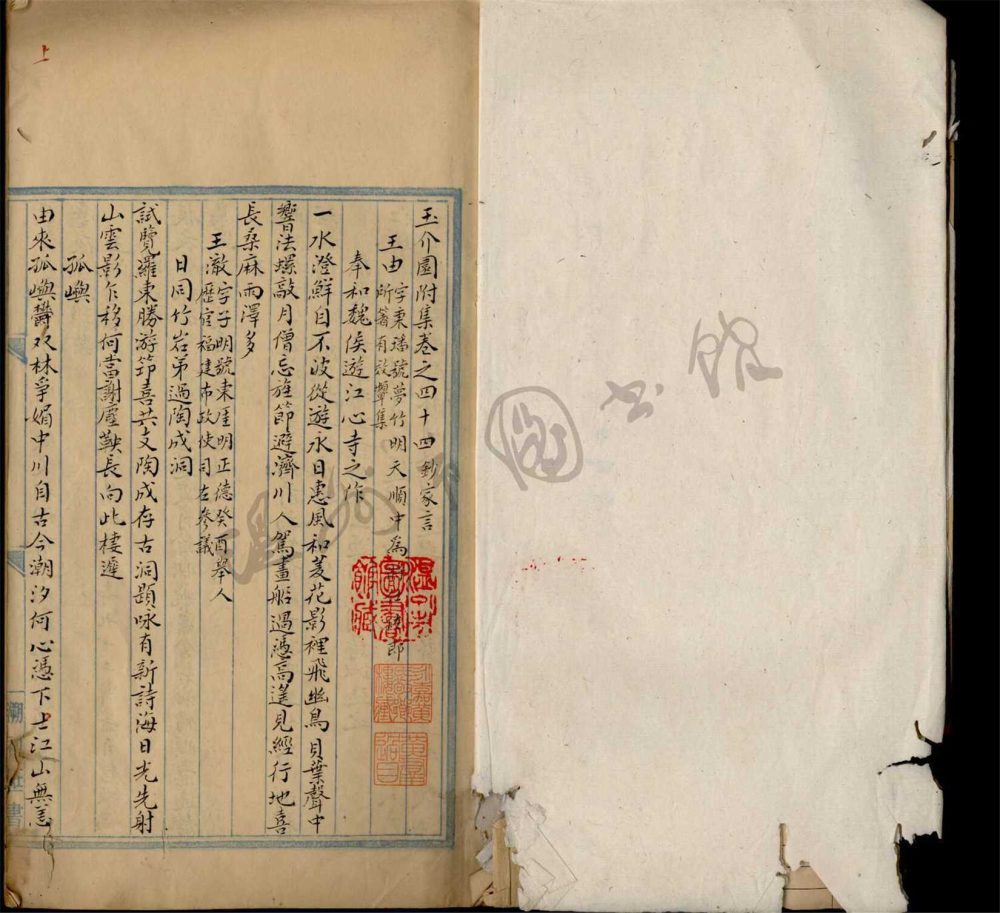 上
玉介園附集卷之四十四鈔家言
王由字東璠號夢竹明天順中為
郎
所著有啟覃集
奉和魏侯遊江心寺之作
一水澄鮮日不波從遊永日惠風和菱花影裡飛幽鳥貝葉聲中
響法螺敲月僧忘旌節避濟川人駕畫船過憑高遙見經行地喜
長桑麻雨澤多
王澈字子明號東厓明正德癸酉舉人
歷官福建布政使司左參議
日同竹岩弟過陶成洞
試覽羅東勝游筇喜共支陶成存古洞題咏有新詩海日光先射
山雲影乍移何當謝塵鞅長向此棲遲
孤嶼
由來孤嶼鬱双林爭媚中川自古今潮汐何心憑下上江山無恙
溫州
圖書
館藏
圖書館